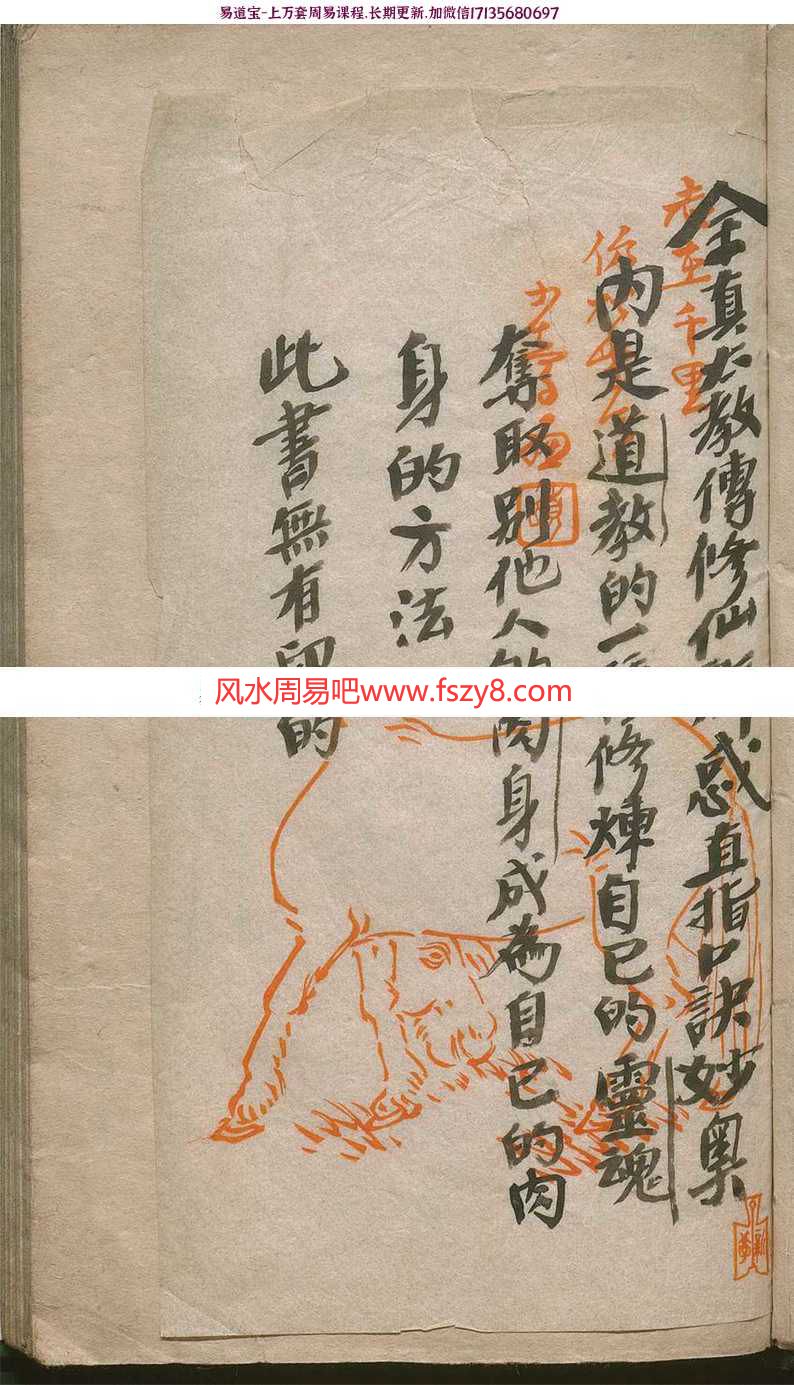 易道宝-上万套周易课程.长期更新.加微信17135680697
全真大教傳修仙感直指口訣妙奥
内是道教的一修煉自己的靈魂
奪取别他人的肉身成為自己的肉
身的方法
此書無有的
志在千里
风水周易吧www.fszy8.com